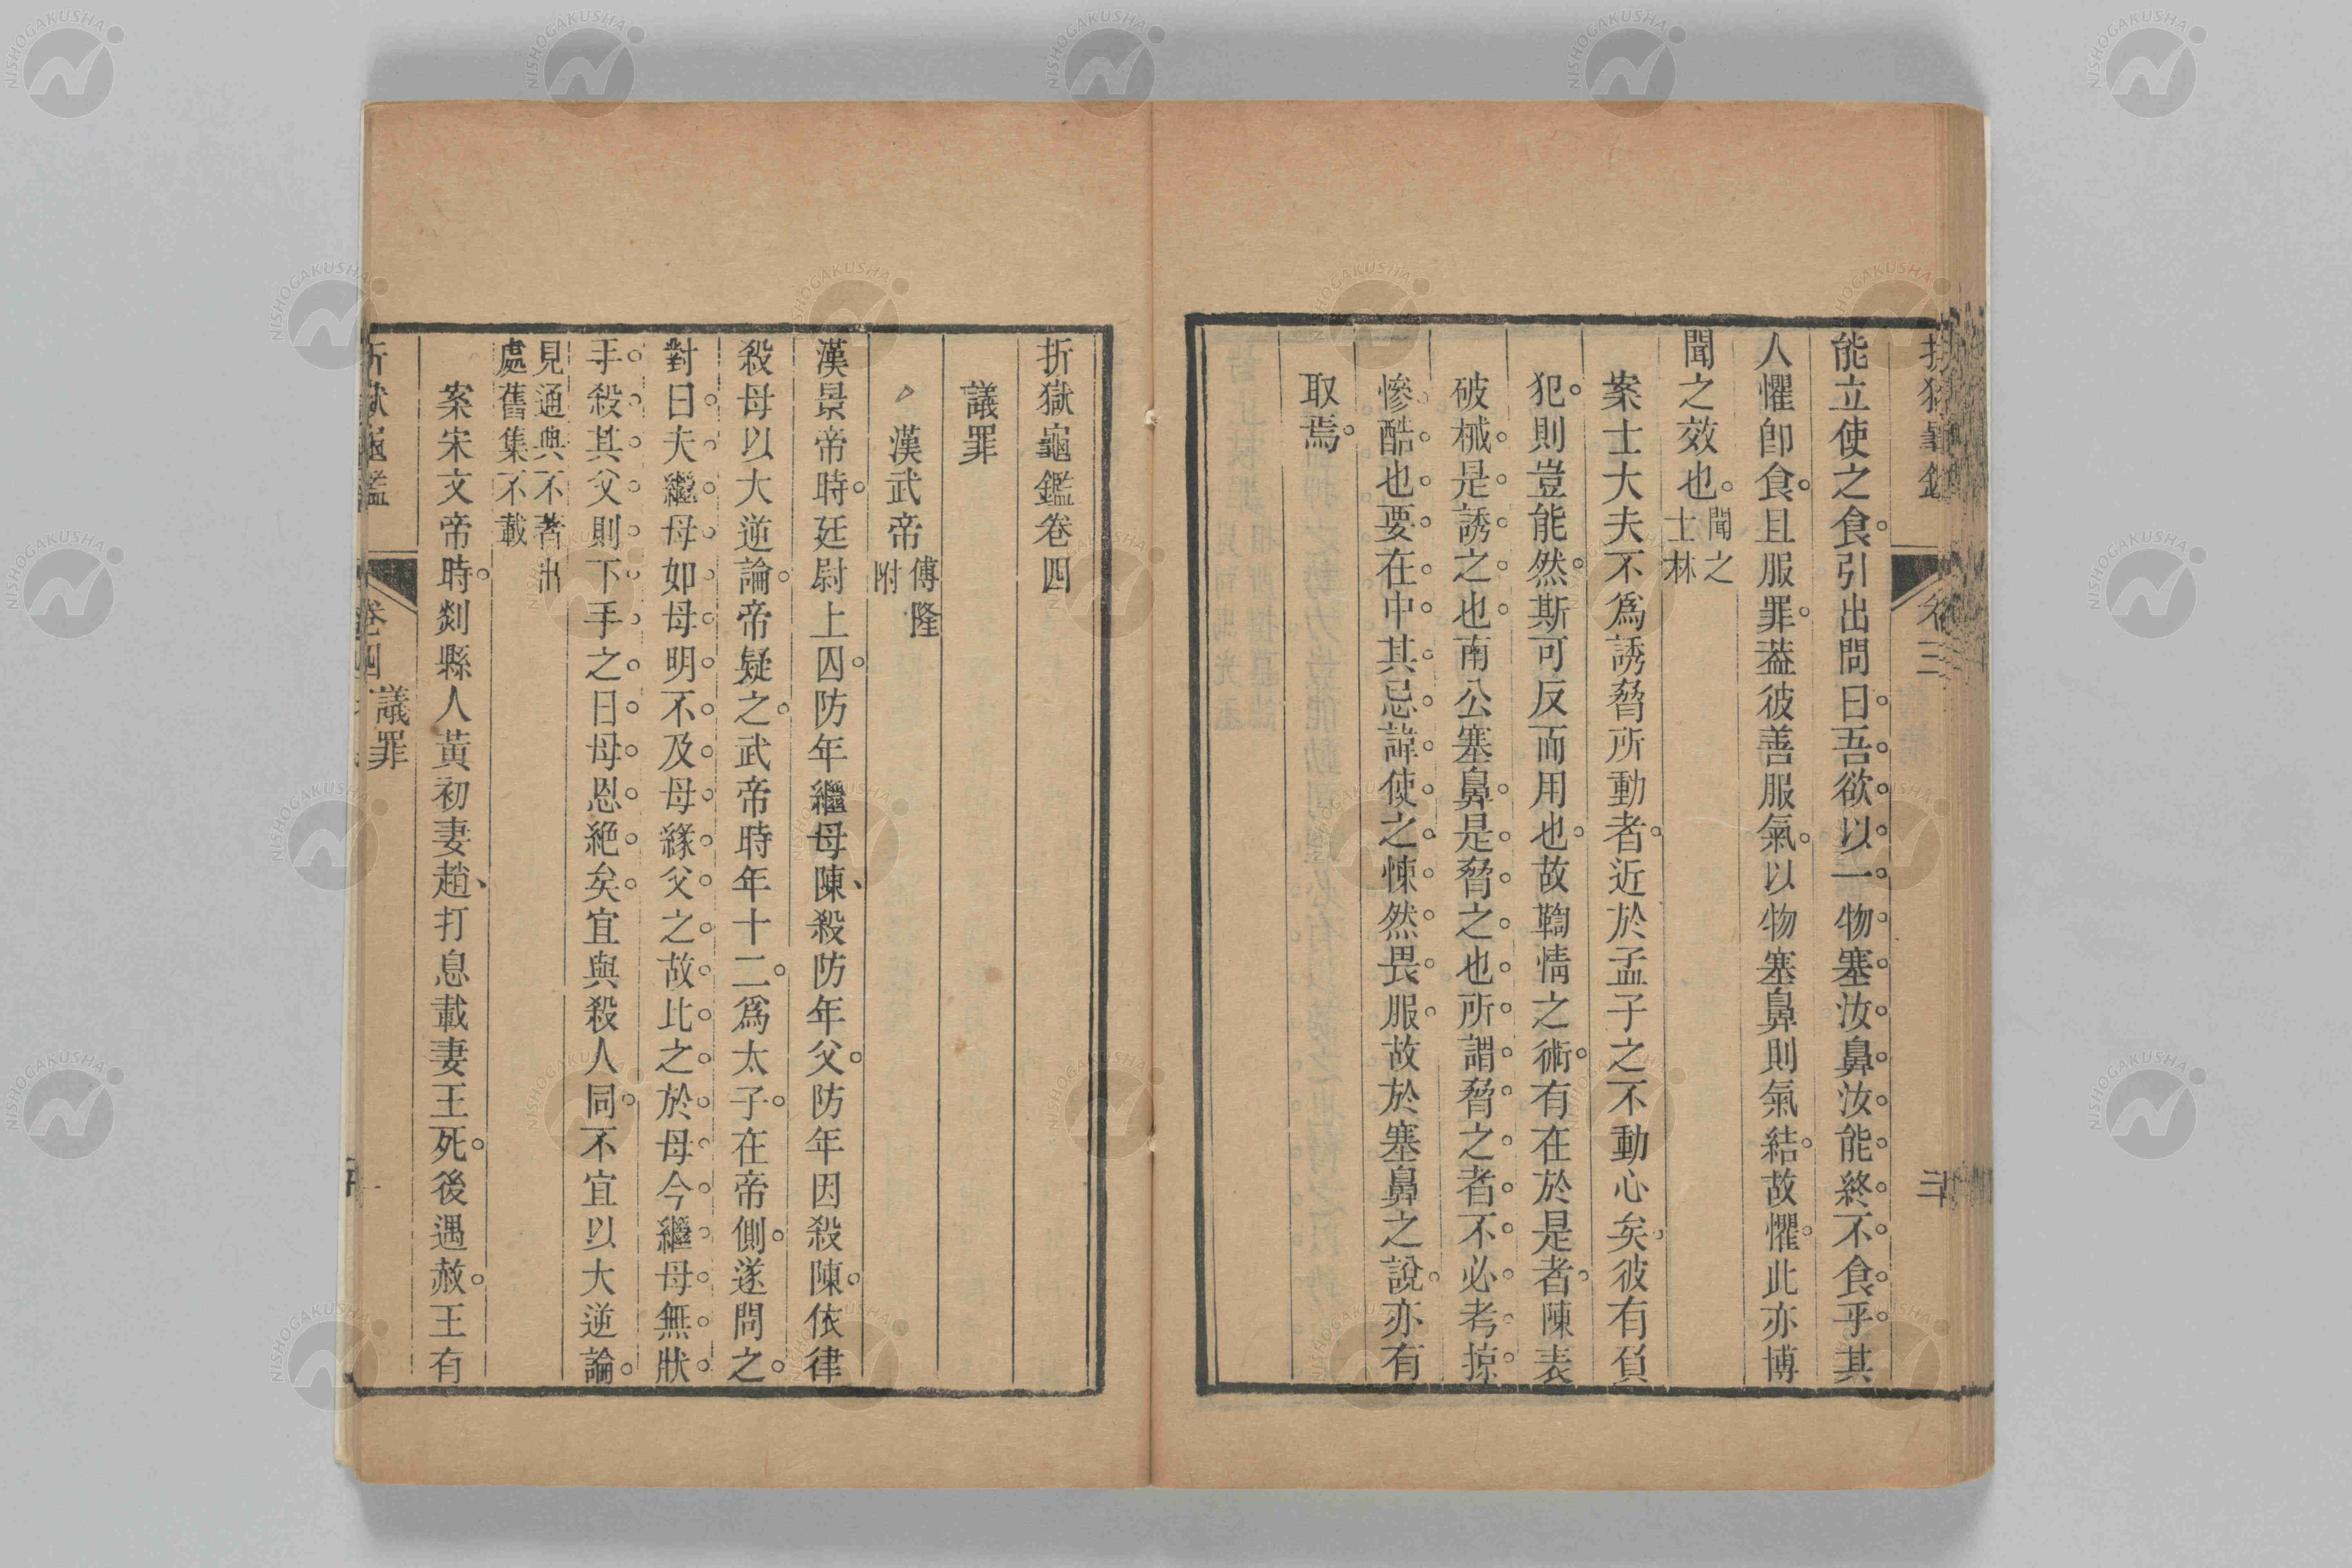 能立使之食。引出問曰。吾。欲。以。一。物。塞。汝。鼻。汝。能。終。不。食。乎。其
人懼卽食。且服罪。葢彼善服氣。以物塞鼻則氣結。故懼。此亦博
聞之效也。聞之士林
案士大夫不爲誘脅所動者。近於孟子之不動心矣。彼有負
犯。則豈能然。斯可反而用也。故鞫情之術。有在於是者。陳表
破械。是。誘。之。也。南公塞鼻。是。脅。之。也。所。謂。脅。之。者。不。必。考。掠。
慘。酷。也。要。在。中。其。忌。諱。使。之。悚。然。畏。服。故於塞鼻之說。亦有
取焉。
卷三
折獄龜鑑卷四
議罪
漢武帝 傅隆附
漢景帝時。廷尉上囚。防年繼母陳、殺防年父。防年因殺陳。依律
殺母以大逆論。帝疑之。武帝時年十二。爲太子。在帝側。遂問之。
對曰。夫。繼。母。如。母。明。不。及。母。緣。父。之。故。比。之。於。母。今。繼。母。無。狀。
手。殺。其。父。則。下。手。之。日。母。恩。絶。矣。宜與殺人同。不宜以大逆論。
見通典不著出
處舊集不載
案宋文帝時。剡縣人黃初妻趙、打息載妻王死。後遇赦。王有
折獄龜鑑 卷四 議罪